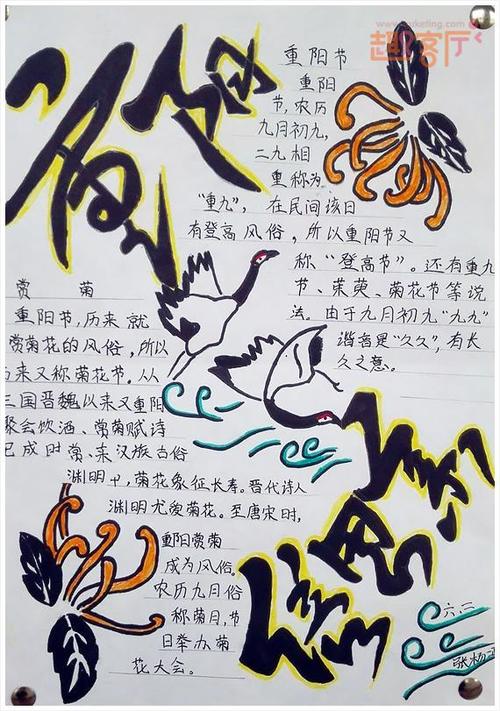 www.marketing.com
趣客厅
重阳
重阳节
重阳
节,农历
九月初九,
二九相
重称为
“重九”,在民间该日
有登高风俗,所以重阳节又
称“登高节”。还有重九
节、茱萸、菊花节等说
法。由于九月初九“九九”
谐音是“久久”,有长
久之意。
赏菊
重阳节,历来就
赏菊花的风俗,所以
来又称菊花节。从
三国晋魏以来又重阳
聚会饮酒、赏菊赋诗
已成时赏、来汉族古俗
渊明中,菊花象征长寿。晋代诗人
渊明尤爱菊花。至唐宋时,
重阳赏菊
成为风俗。
农历九月俗
称菊月,节
日举办菊
花大会。
六.二
张杨